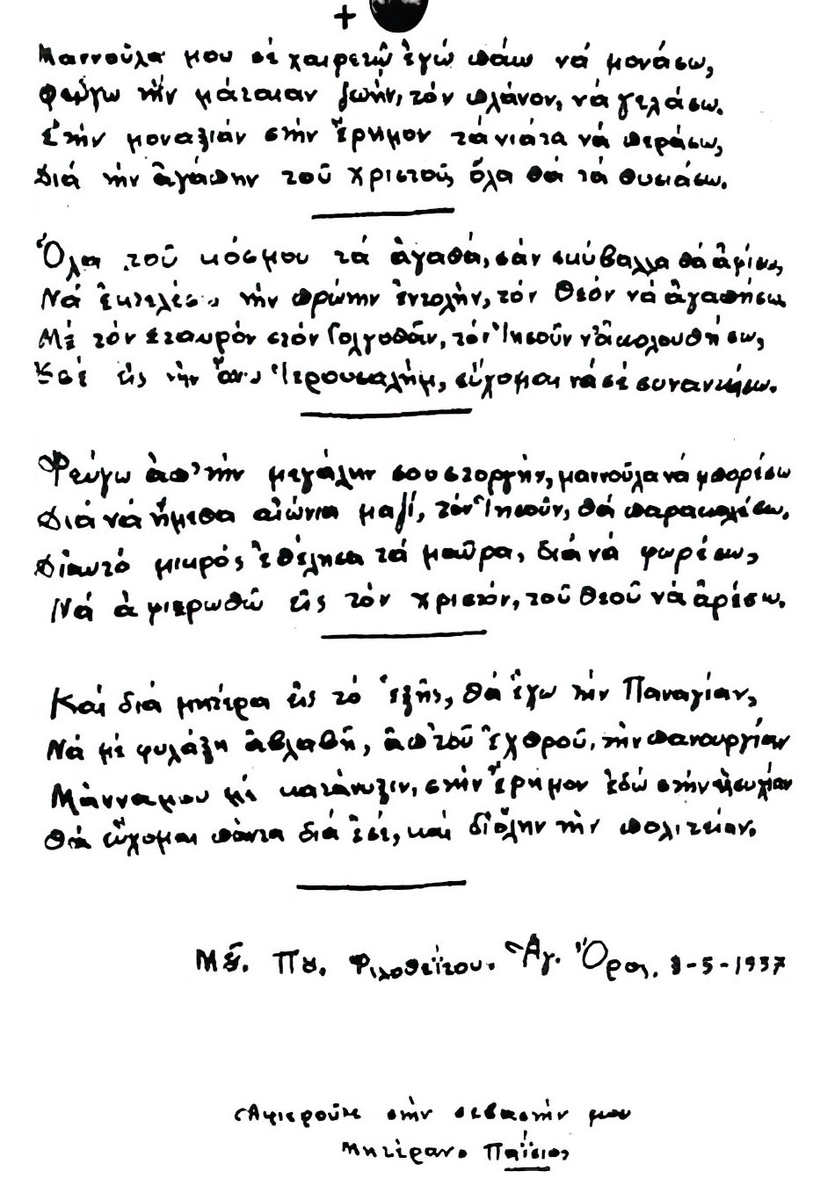 +
Μαννούλα μου σέ χαιρετῶ ἐγώ πάω νά μονάσω,
φεύγω τήν μάταιαν ζωήν, τόν πλάνον, νά γελάσω.
Στήν μοναξιάν στήν ἔρημον τά νιάτα νά περάσω,
Διά τήν ἀγάπην τοῦ Χριστοῦ, ὅλα θά τά θυσιάσω.
Ὅλα τοῦ κόσμου τά ἀγαθά, σάν σκύβαλλα θά ἀφίσω,
Νά ἐκτελέσω τήν πρώτην ἐντολήν, τόν Θεόν νά ἀγαπήσω
Μέ τόν Σταυρόν στόν Γολγοθᾶν, τόν Ἰησοῦν ν'ἀκολουθήσω,
Καί εἰς τήν ἄνω Ἱερουσαλήμ, εὔχομαι νά σέ συναντήσω.
Φεύγω ἀπ' τήν μεγάλην σου στοργήν, μαννούλα νά μπορέσω
Διά νά ἤμεθα αἰώνια μαζί, τόν Ἰησοῦν, θά παρακαλέσω.
Δι'αυτό μικρός ἐθέλησα τά μαῦρα, διά νά φορέσω,
Νά ἀφιερωθῶ εἰς τόν Χριστόν, τοῦ Θεοῦ νά ἀρέσω.
Καί διά μητέρα εἰς τό ἑξῆς, θά ἔχω τήν Παναγίαν,
Νά μέ φυλάξη ἀβλαβῆ, ἀπ'τοῦ ἐχθροῦ, τήν πανουργίαν
Μάννα μου μέ κατάνυξιν, στήν ἔρημον ἐδώ στήν ἡσυχίαν
Θά εὔχομαι πάντα διά ἐσέ, καί δι'ὅλην τήν πολιτείαν.
Φιλοθεΐτου. Ἁγ. Ὄρος, 3-5-1957
Ἀφιεροῦτε στήν σεβαστήν μου
Μητέραν. Παΐσιος